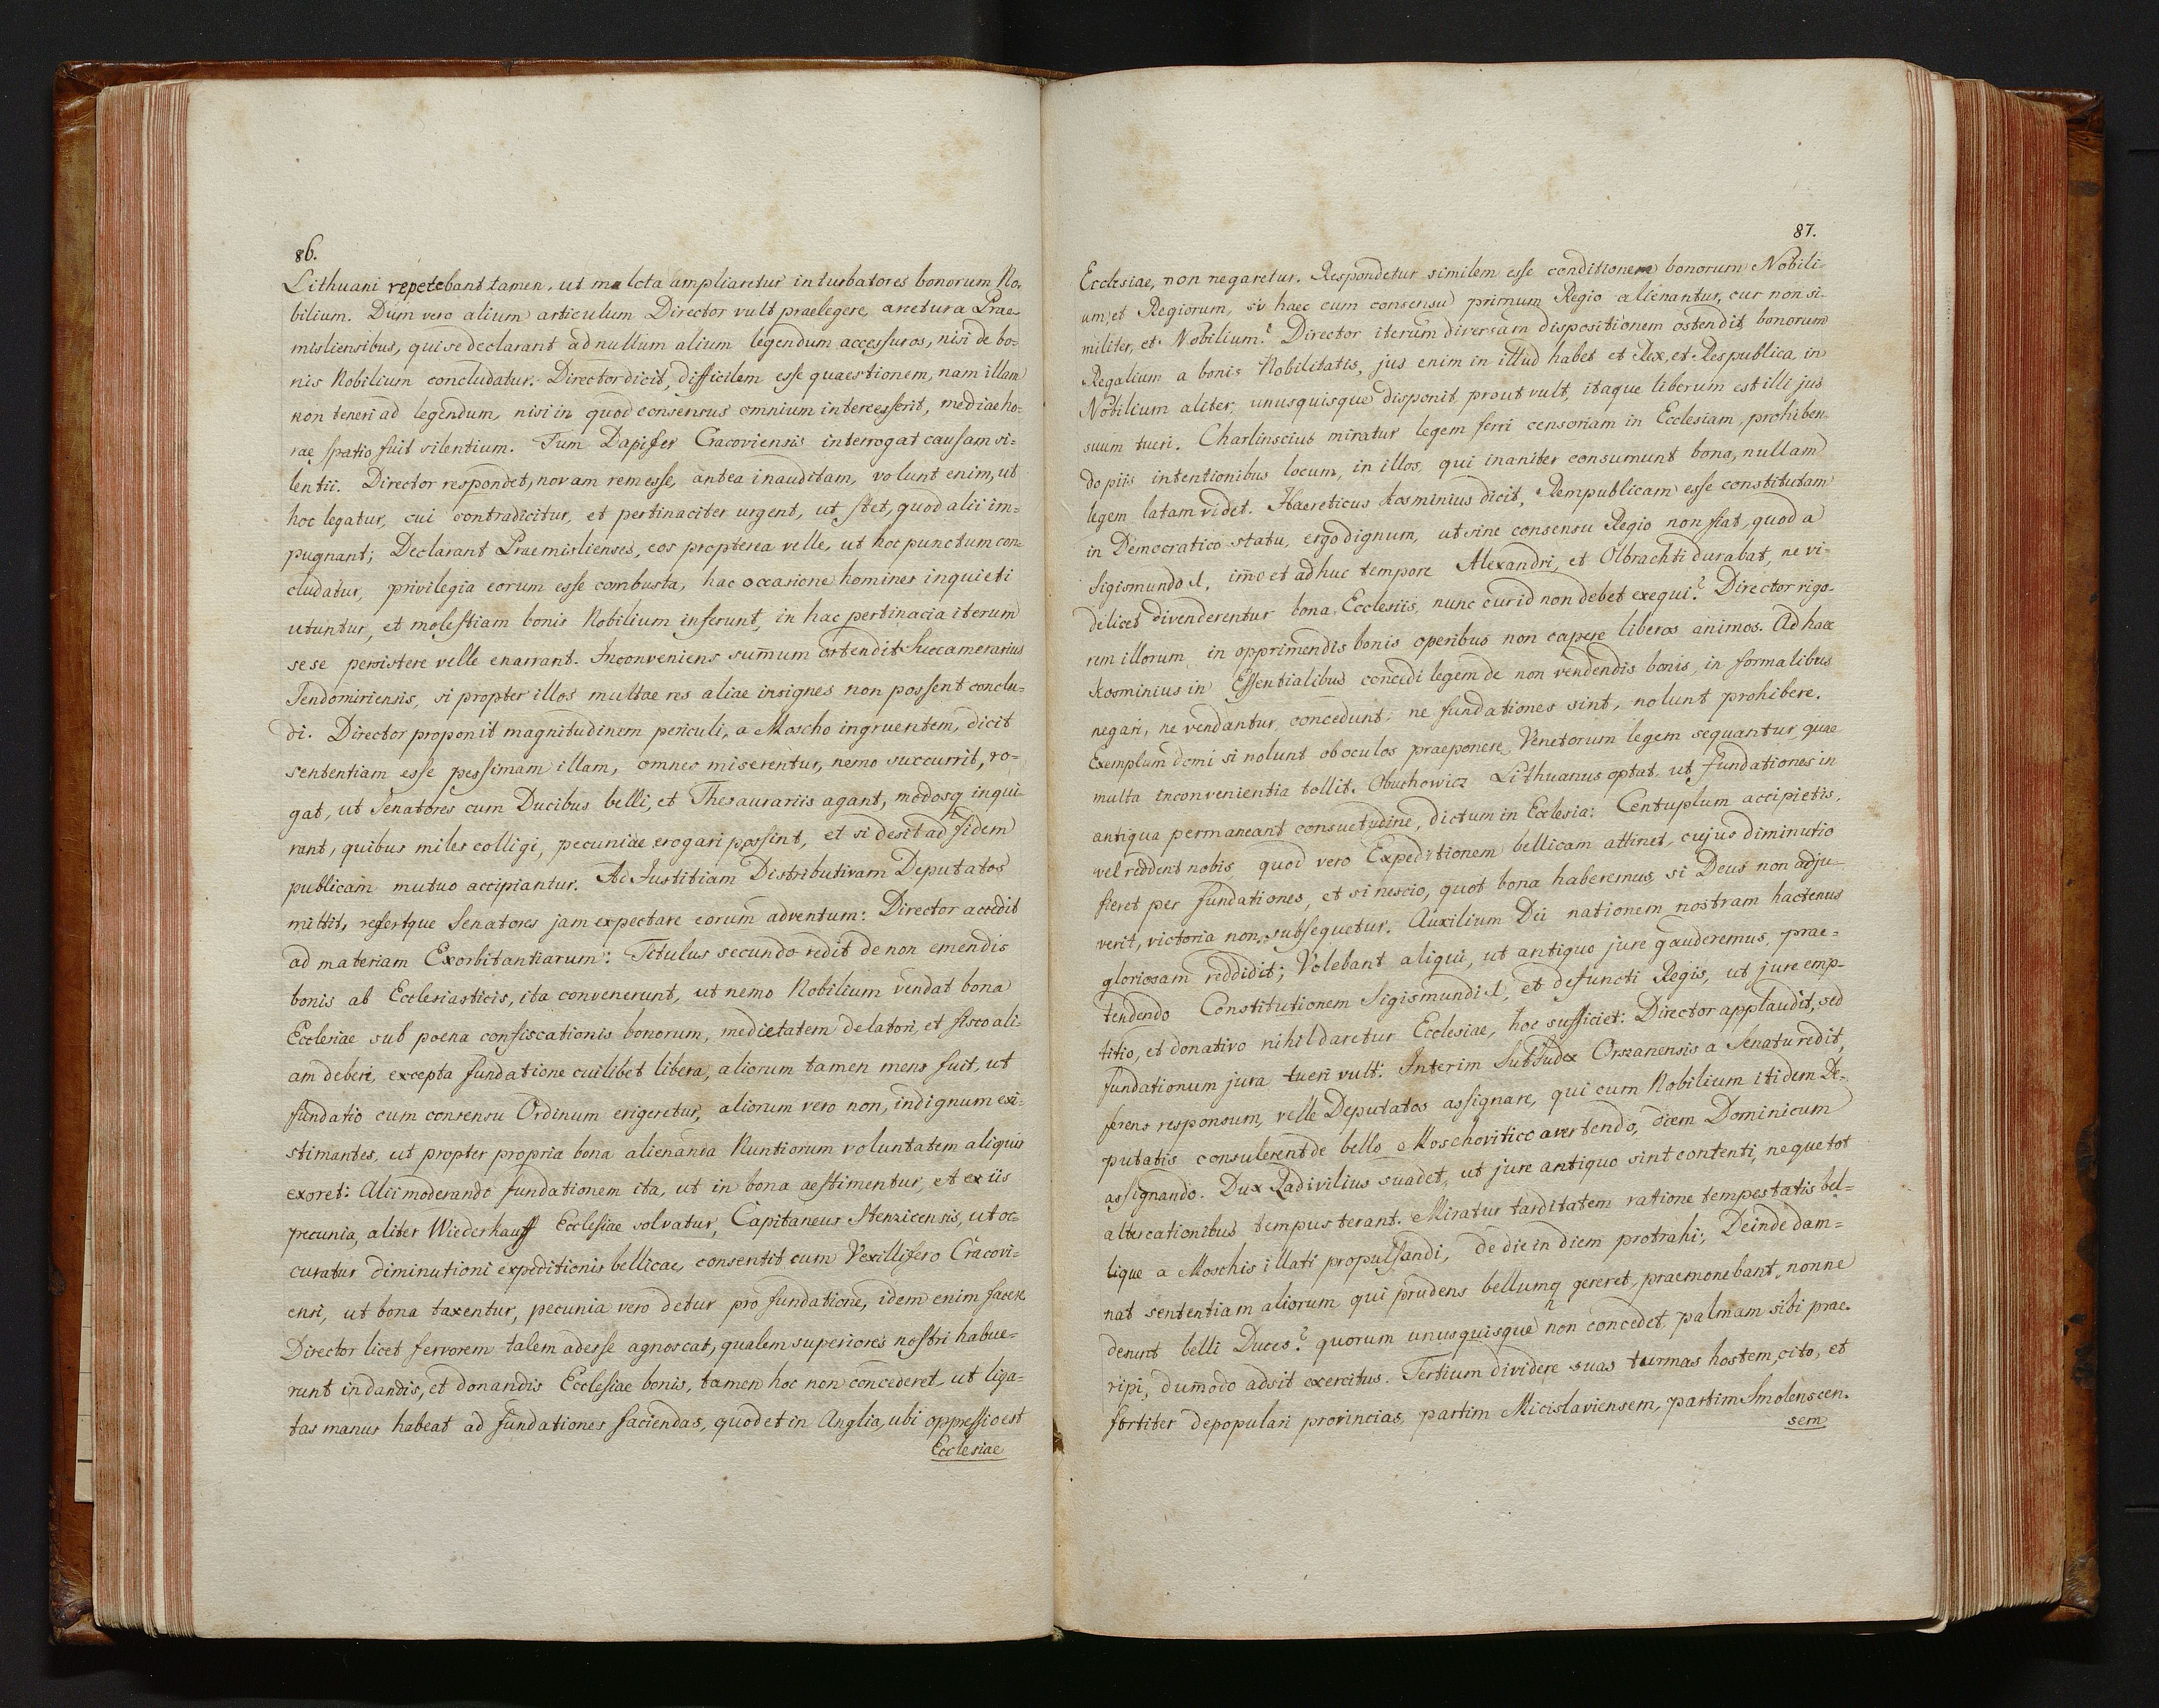 86.
Lithuani repetebant tamen, ut mulcta ampliaretur in turbatores bonorum No-
bilium. Dum vero alium articulum Director vult praelegere, arcetur a Prae-
misliensibus, qui se declarant ad nullum alium legendum accessuros, nisi de bo-
nis Nobilium concludatur. Director dicit, difficilem esse quaestionem, nam illam
non teneri ad legendum, nisi in quod consensus omnium intercesserit, mediae ho-
rae spatio fuit silentium. Tum Dapifer Cracoviensis interrogat causam si-
lentii. Director respondet, novam rem esse, antea inauditam, volunt enim, ut
hoc legatur, cui contradicitur, et pertinaciter urgent, ut stet, quod alii im-
pugnant; Declarant Praemislienses, eos propterea velle, ut hoc punctum con-
cludatur, privilegia eorum esse combusta, hac occasione homines inquieti
utuntur, et molestiam bonis Nobilium inferunt, in hac pertinacia iterum
sese persistere velle enarrant. Inconveniens sum̅um ostendit Succamerarius
Sendomiriensis, si propter illos multae res aliae insignes non possent conclu-
di. Director proponit magnitudinem periculi, a Moscho ingruentem, dicit
sententiam esse pessimam illam, omnes miserentur, nemo succurrit, ro-
gat, ut Senatores cum Ducibus belli, et Thesaurariis agant, modosq inqui-
rant, quibus miles colligi, pecuniae erogari possint, et si desit ad fidem
publicam mutuo accipiantur. Ad Justitiam Distributivam Deputatos
mittit, refertque Senatores jam expectare eorum adventum: Director accedit
ad materiam Exorbitantiarum: Titulus secundo redit de non emendis
bonis ab Ecclesiasticis, ita convenerunt, ut nemo Nobilium vendat bona
Ecclesiae sub poena confiscationis bonorum, medietatem delatori, et fisco ali-
am deberi, excepta fundatione cuilibet libera, aliorum tamen mens fuit, ut
fundatio cum consensu Ordinum erigeretur, aliorum vero non, indignum exi-
stimantes, ut propter propria bona alienanda Nuntiorum voluntatem aliquis
exoret: Alii moderando fundationem ita, ut in bona aestimentur, et ex iis
pecunia, aliter Wiederkauff Ecclesiae solvatur, Capitaneus Stenzicensis, ut oc-
curatur diminutioni expeditionis bellicae, consentit cum Vexillifero Cracovi-
ensi, ut bona taxentur, pecunia vero detur pro fundatione, idem enim facere
Director licet fervorem talem adesse agnoscat, qualem superiores nostri habue-
runt in dandis, et donandis Ecclesiae bonis, tamen hoc non concederet, ut liga-
tas manus habeat ad fundationes faciendas, quod et in Anglia, ubi oppressio est
Ecclesiae
87.
Ecclesiae, non negaretur. Respondetur similem esse conditionem bonorum Nobili-
um, et Regiorum, si haec cum consensu primum Regio alienantur, cur non si-
militer, et Nobilium? Director iterum diversam dispositionem ostendit bonorum
Regalium a bonis Nobilitatis, jus enim in illud habet et Rex, et Respublica, in
Nobilium aliter, unusquisque disponit prout vult, itaque liberum est illi jus
suum tueri. Charlinscius miratur legem ferri censoriam in Ecclesiam, prohiben-
do piis intentionibus locum, in illos, qui inaniter consumunt bona, nullam
legem latam videt. Haereticus Kosminius dicit, Rempublicam esse constitutam
in Democratico statu, ergo dignum, ut sine consensu Regio non fiat, quod a
Sigismundo I. im̅o et adhuc tempore Alexandri, et Olbrachti durabat, ne vi-
delicet divenderentur bona Ecclesiis, nunc cur id non debet exequi? Director rigo-
rem illorum in opprimendis bonis operibus non capere liberos animos. Ad haec
Kosminius in Essentialibus concedi legem de non vendendis bonis, in formalibus
negari, ne vendantur, concedunt, ne fundationes sint, nolunt prohibere.
Exemplum domi si nolunt ob oculos praeponere, Venetorum legem sequantur, quae
multa inconvenientia tollit. Obuchowicz Lithuanus optat, ut fundationes in
antiqua permaneant consuetudine, dictum in Ecclesia: Centuplum accipietis,
vel reddent nobis, quod vero Expeditionem bellicam attinet, cujus diminutio
fieret per fundationes, et si nescio, quot bona haberemus, si Deus non adju-
verit, victoria non subsequetur. Auxilium Dei nationem nostram hactenus
gloriosam reddidit; Volebant aliqui, ut antiquo jure gauderemus, prae-
tendendo Constitutionem Sigismundi I, et defuncti Regis, ut jure emp-
titio, et donativo nihil daretur Ecclesiae, hoc sufficiet: Director applaudit, sed
fundationum jura tueri vult. Interim SubJudex Orszanensis a Senatu redit,
ferens responsum, velle Deputatos assignare, qui cum Nobilium itidem De-
putatis consulerent de bello Moschovitico avertendo, diem Dominicum
assignando. Dux Radivilius suadet, ut jure antiquo sint contenti, neque tot
altercationibus tempus terant. Miratur tarditatem ratione tempestatis bel-
lique a Moschis illati propulsandi, de die in diem protrahi; Deinde dam-
nat sententiam aliorum qui prudens bellumq gereret, praemonebant, nonne
derunt belli Duces? quorum unusquisque non concedet palmam sibi prae-
ripi, dum̅odo adsit exercitus. Tertium dividere suas turmas hostem, cito, et
fortiter depopulari provincias, partim Micislaviensem, partim Smolenscen-
sem